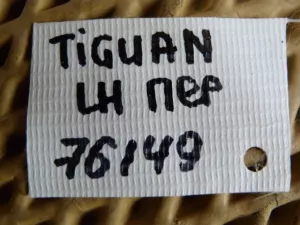 TIGUAN
LH пер
76149